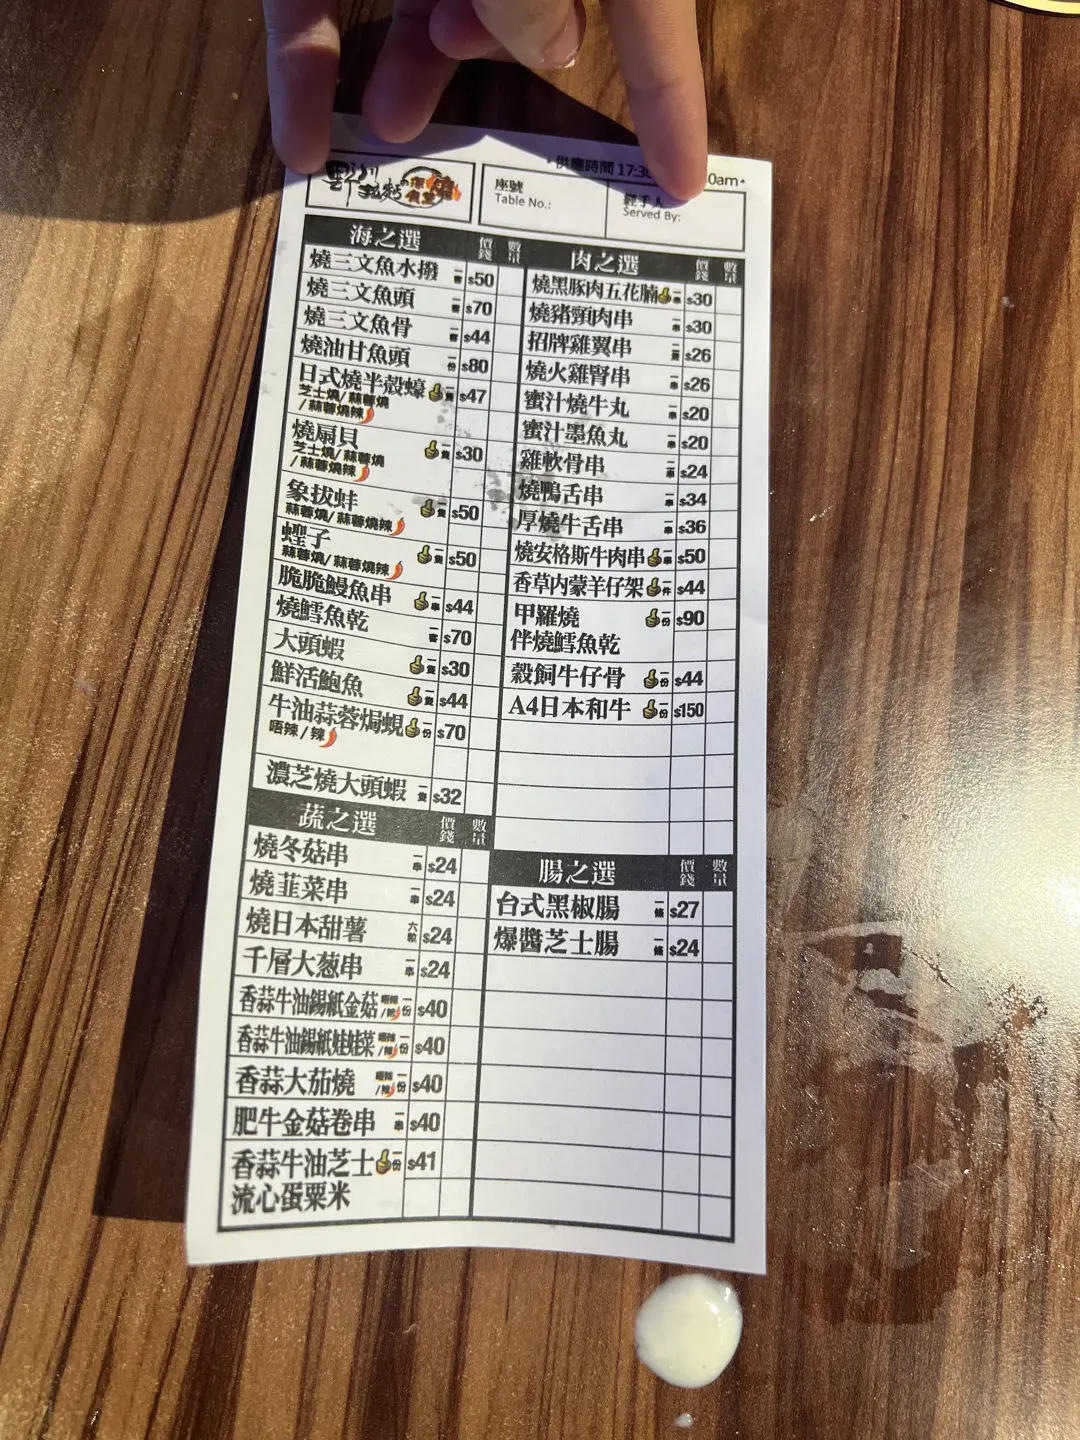 供應時間 17:3
0am
座號
Table No.:
經手人
Served By:
海之選 價錢 數量
燒三文魚水撥 $50
燒三文魚頭 $70
燒三文魚骨 $44
燒油甘魚頭 一份 $80
日式燒半殼蠔 一隻 $47
芝士燒/蒜蓉燒
/蒜蓉燒辣
燒扇貝 一隻 $30
芝士燒/蒜蓉燒
/蒜蓉燒辣
象拔蚌 一隻 $50
蒜蓉燒/蒜蓉燒辣
蟶子 一隻 $50
蒜蓉燒/蒜蓉燒辣
脆脆鰻魚串 一串 $44
燒鱈魚乾 $70
大頭蝦 一隻 $30
鮮活鮑魚 一隻 $44
牛油蒜蓉焗蜆 一份 $70
唔辣/辣
濃芝燒大頭蝦 一隻 $32
蔬之選 價錢 數量
燒冬菇串 一串 $24
燒韮菜串 一串 $24
燒日本甜薯 六粒 $24
千層大葱串 一串 $24
香蒜牛油錫紙金菇 唔辣/辣 一份 $40
香蒜牛油錫紙娃娃菜 唔辣/辣 一份 $40
香蒜大茄燒 唔辣/辣 一份 $40
肥牛金菇卷串 一串 $40
香蒜牛油芝士 一份 $41
流心蛋粟米
肉之選 價錢 數量
燒黑豚肉五花腩 $30
燒豬頸肉串 一串 $30
招牌雞翼串 $26
燒火雞腎串 一串 $26
蜜汁燒牛丸 一串 $20
蜜汁墨魚丸 一串 $20
雞軟骨串 一串 $24
燒鴨舌串 一串 $34
厚燒牛舌串 一串 $36
燒安格斯牛肉串 一串 $50
香草内蒙羊仔架 一件 $44
甲羅燒 一份 $90
伴燒鱈魚乾
穀飼牛仔骨 一份 $44
A4日本和牛 一份 $150
腸之選 價錢 數量
台式黑椒腸 一條 $27
爆醬芝士腸 一條 $24